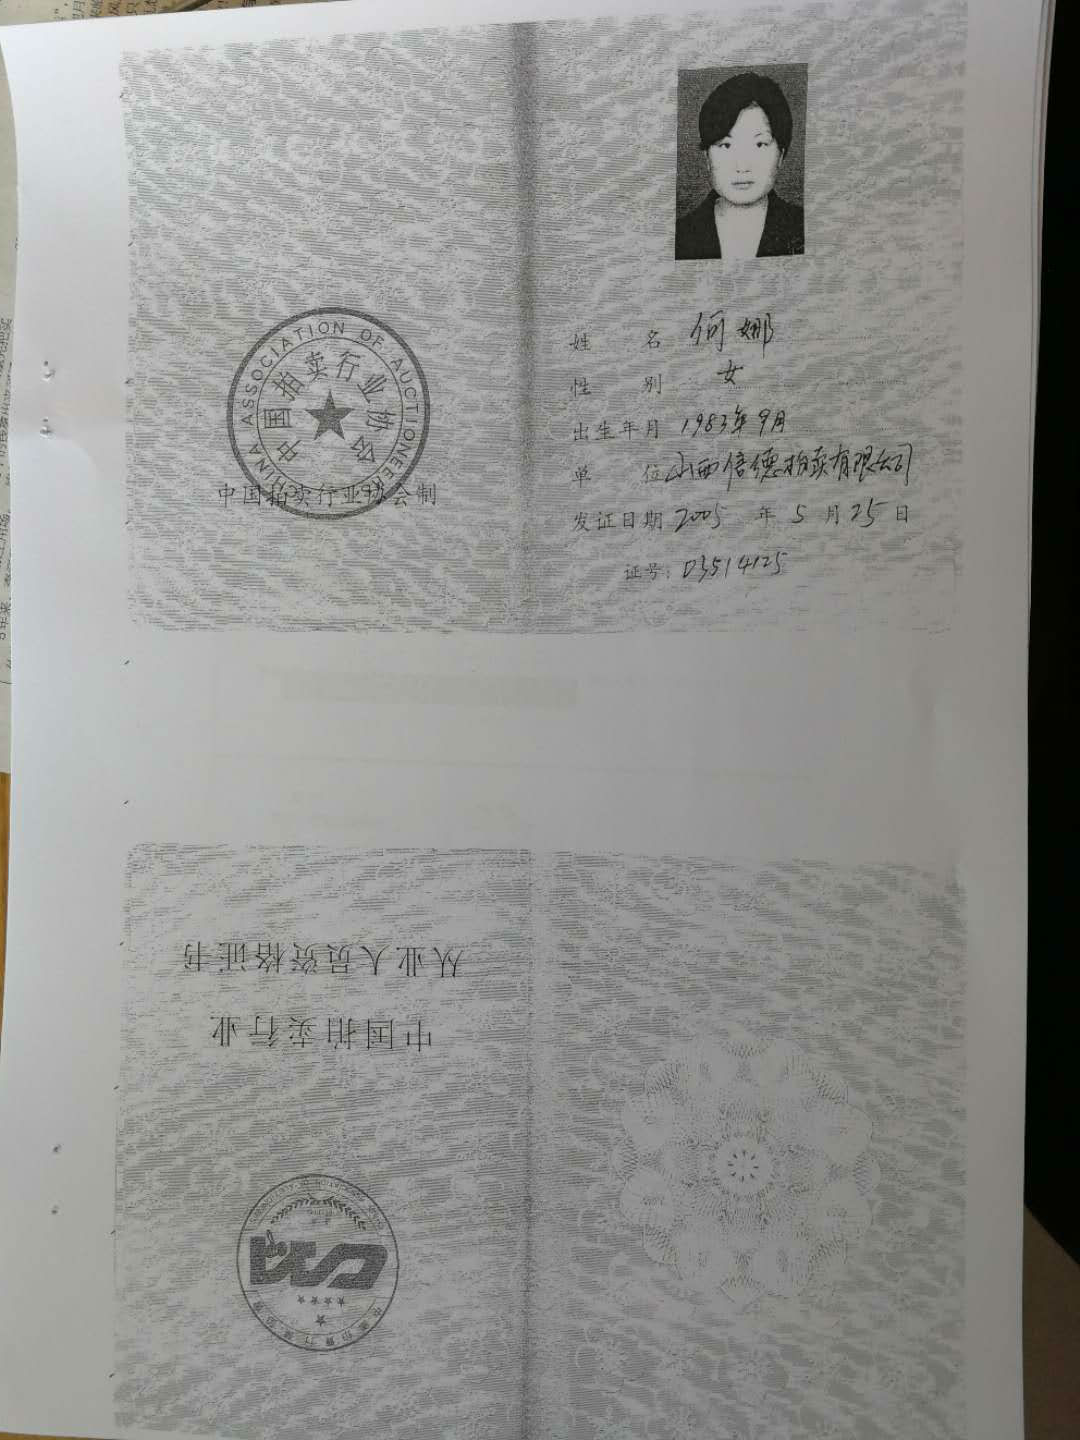 CHINA ASSOCIATION OF AUCTIONEERS
中国拍卖行业协会
中国拍卖行业协会制
姓 名 何娜
性 别 女
出生年月 1983年9月
单 位 山西信德拍卖有限公司
发证日期 2005 年 5 月 25 日
证号: 03514125
中国拍卖行业
从业人员资格证书